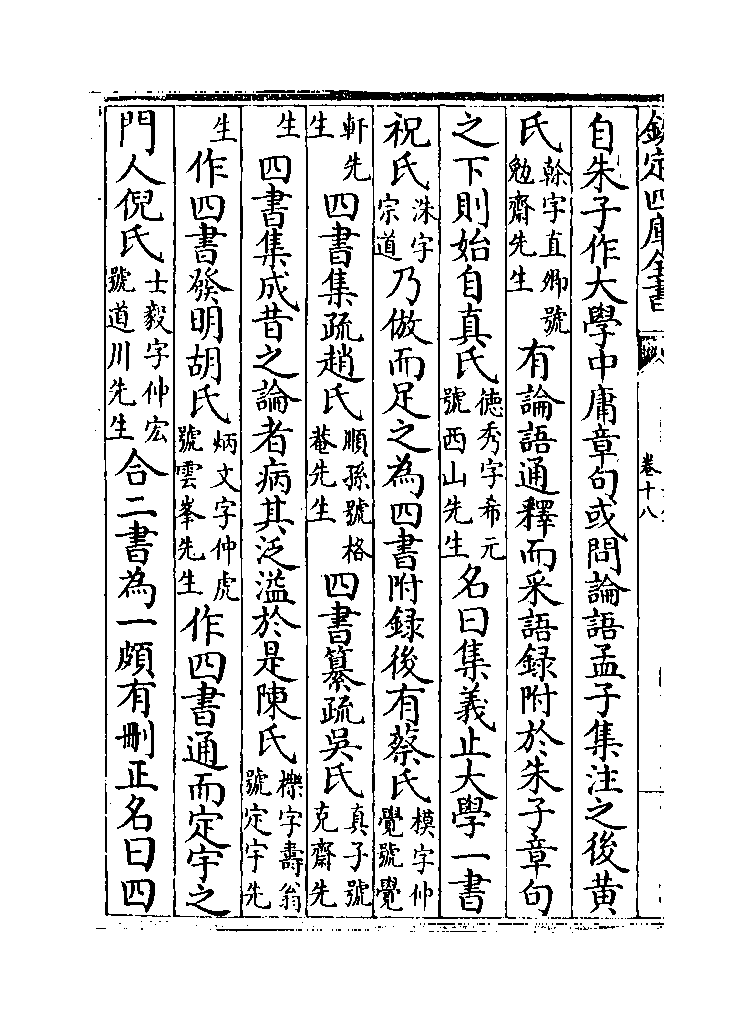 欽定四庫全書
卷十八
自朱子作大學中庸章句或問論語孟子集注之後黄
氏榦字直卿號勉齋先生有論語通釋而采語録附於朱子章句
之下則始自真氏德秀字希元號西山先生名曰集義止大學一書
祝氏洙字宗道乃倣而足之為四書附録後有蔡氏模字仲覺號覺
軒先生四書集疏趙氏順孫號格菴先生四書纂疏吳氏真子號克齋先
生四書集成昔之論者病其泛溢於是陳氏櫟字壽翁號定宇先
生作四書發明胡氏炳文字仲虎號雲峯先生作四書通而定宇之
門人倪氏士毅字仲宏號道川先生合二書為一頗有刪正名曰四